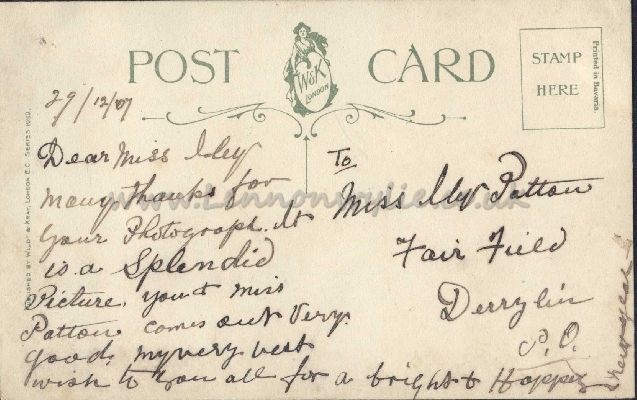 POST CARD
W&K
LONDON
STAMP
HERE
Printed in Bavaria
29/12/07
Dear Miss Iley
many thanks for
your Photograph. It
is a Splendid
Picture you & Miss
Patton comes out Very
good, my very best
wish to you all for a bright & Happy
new year
To
Miss Iley Patton
Fair Field
Derrylin
P.O.
WILDT & KRAY, LONDON. E.C. SERIES